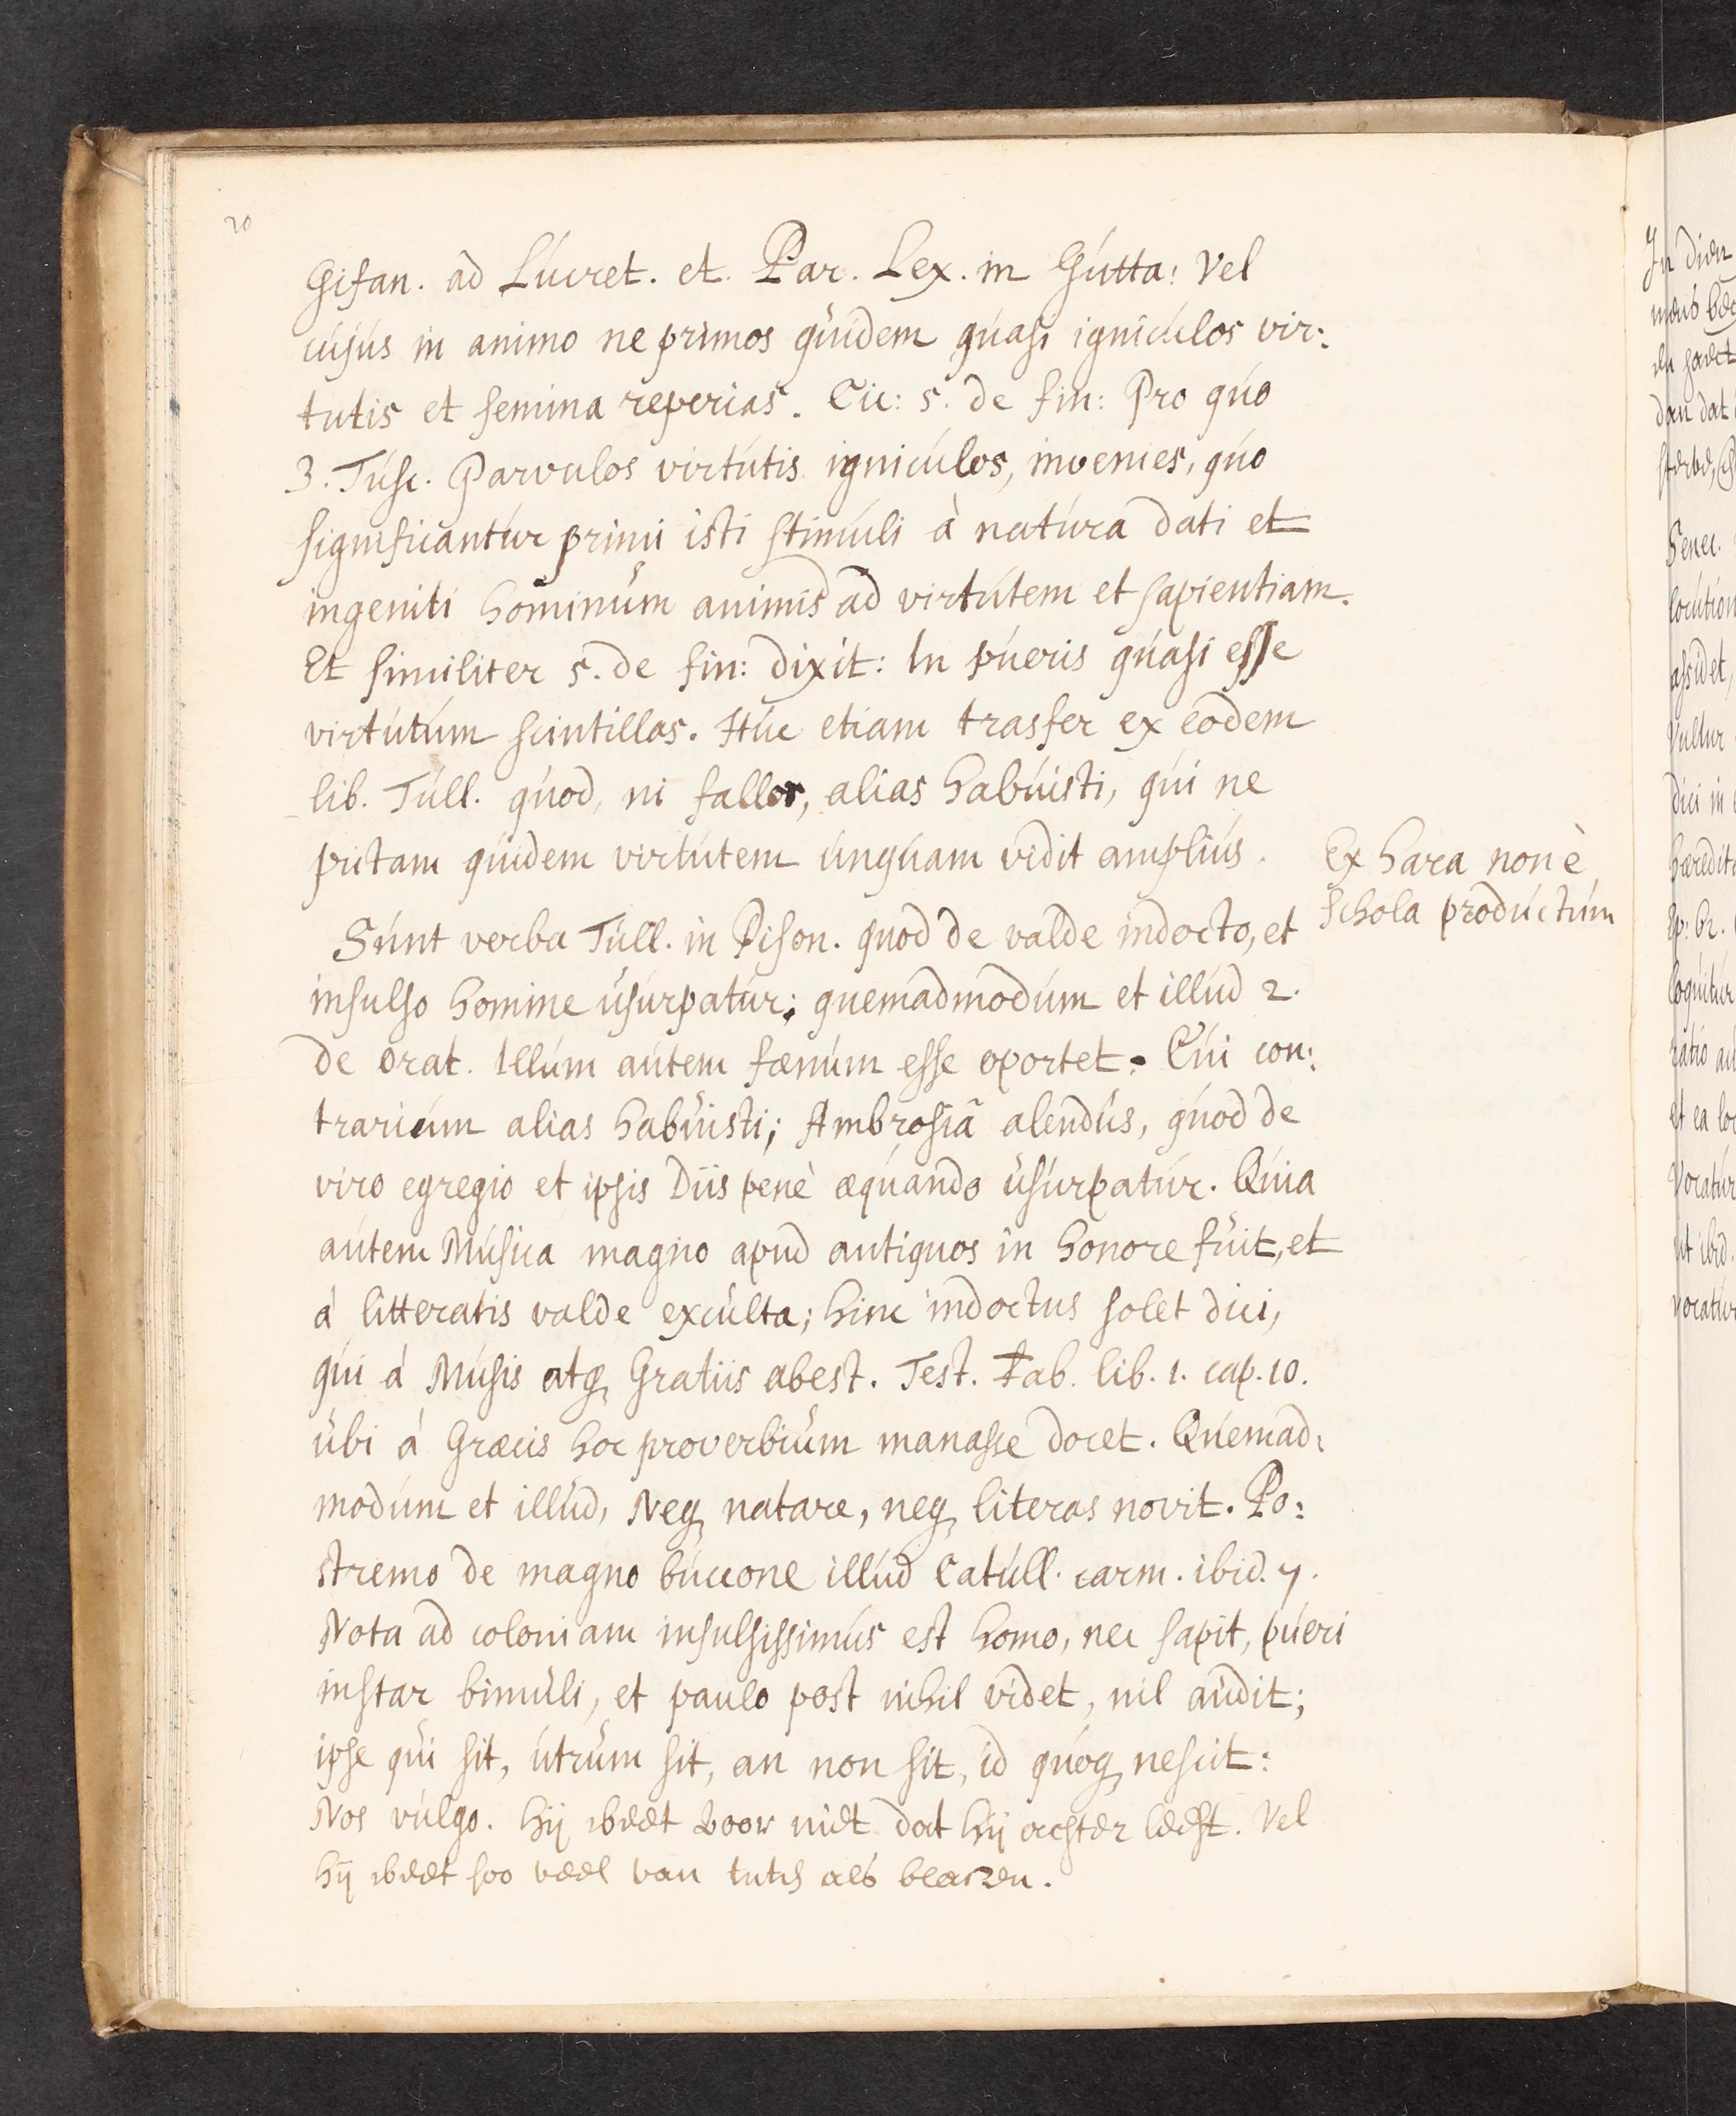 20
Gifan. ad Lucret. et Par. Lex. in Gutta: Vel
cujus in animo ne primos quidem quasi igniculos vir:
tutis et semina reperias. Cic: 5. de fin: Pro quo
3. Tusc. Parvulos virtutis igniculos, invenies, quo
significantur primi isti stimuli à natura dati et
ingeniti hominum animis ad virtutem et sapientiam.
Et similiter 5. de fin: dixit: In pueris quasi esse
virtutum scintillas. Huc etiam trasfer ex eodem
lib. Tull. quod, ni fallor, alias habuisti, qui ne
pictam quidem virtutem unquam vidit amplius.
Ex hara non è
schola productum
Sunt verba Tull. in Pison. quod de valde indocto, et
insulso homine usurpatur; quemadmodum et illud 2.
de Orat. Illum autem fænum esse oportet. Cui con:
trarium alias habuisti; Ambrosiâ alendus, quod de
viro egregio et ipsis Diis penè æquando usurpatur. Quia
autem Musica magno apud antiquos in honore fuit, et
á litteratis valde exculta; hinc indoctus solet dici,
qui á Musis atq, Gratiis abest. Test. Fab. lib. 1. cap. 10.
ubi á Græcis hoc proverbium manasse docet. Quemad:
modum et illud, Neq, natare, neq, literas novit. Po:
stremo de magno buccone illud Catull. carm. ibid. 7.
Nota ad coloniam insulsissimus est homo, nec sapit, pueri
instar bimuli, et paulo post nihil videt, nil audit;
ipse qui sit, utrum sit, an non sit, id quoq, nescit:
Nos vulgo. hij weet voor niet dat hij achter leeft. Vel
hij weet soo veel van als blaezen.